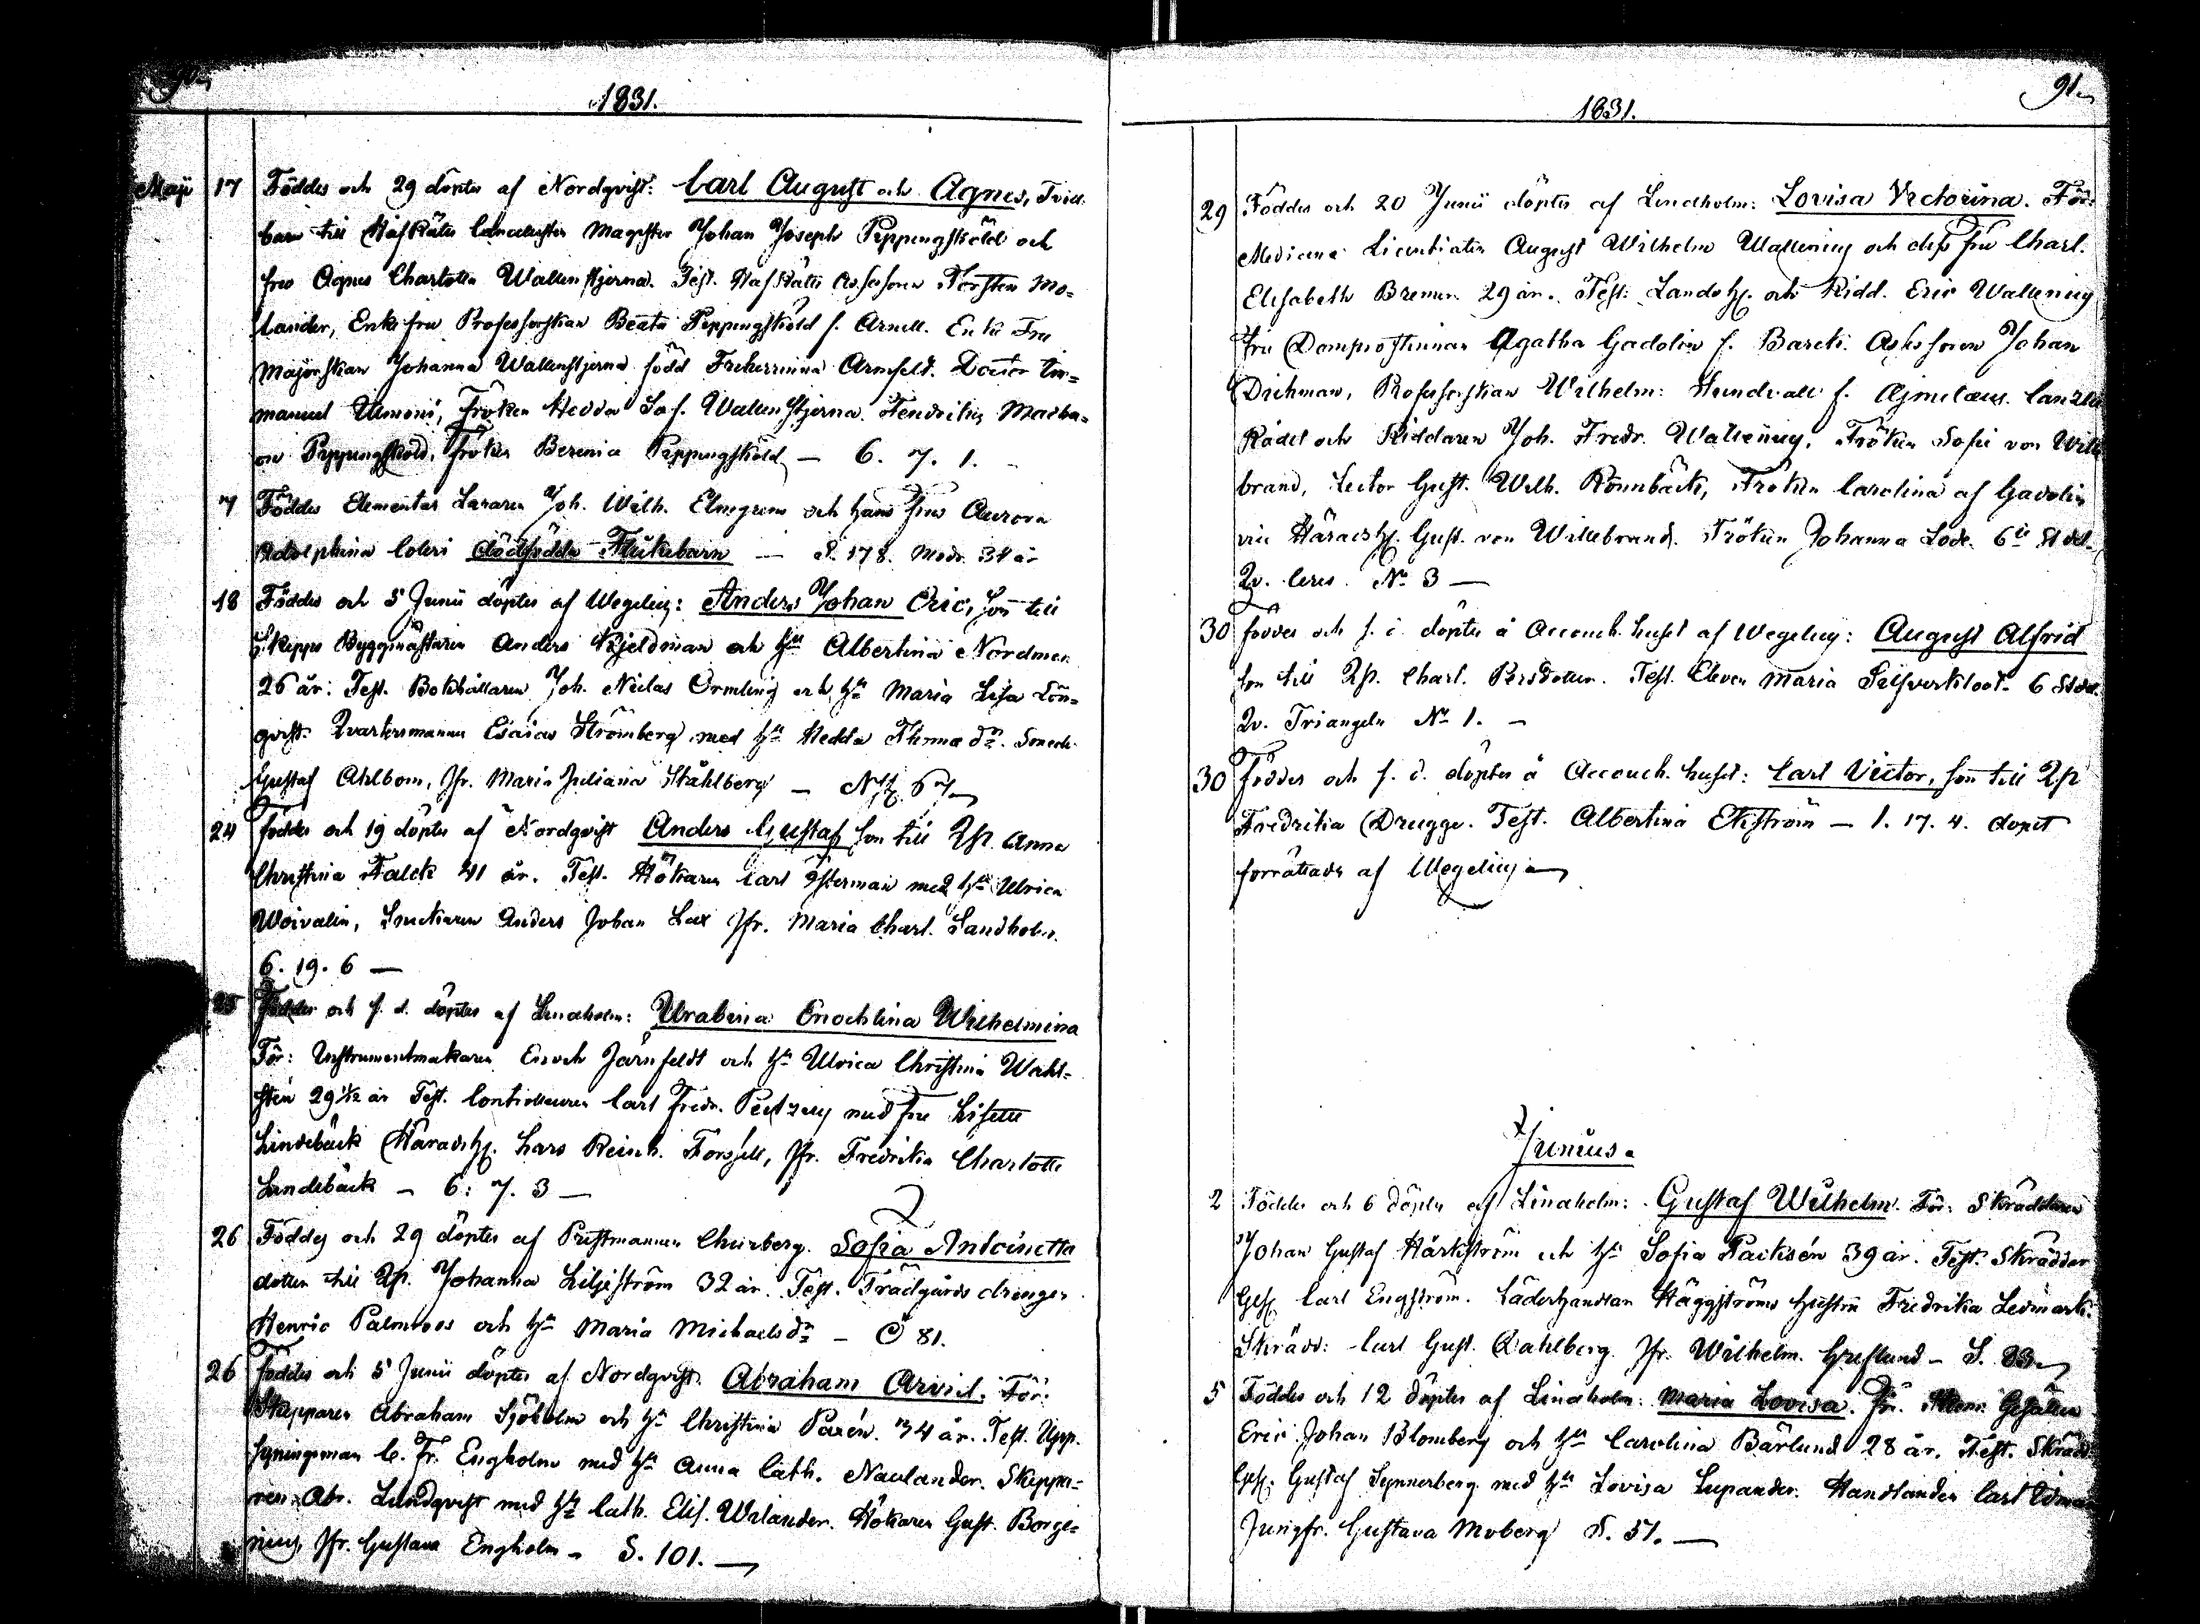 90
1831.
Maji 17 Föddes och 29 döptes af Nordqvist: Carl August och Agnes, Tvill.
barn till HofRätts Cancelisten Magister Johan Joseph Pippingsköld och
fru Agnes Charlotta Wallenstjerna. Test. HofRätts Assessoren Torsten Mo-
lander, Enkefru Professorskan Beata Pippingsköld f. Arnell. Enke Fru
Majorskan Johanna Wallenstjerna född Friherrinna Armfelt. Doctor Em-
manuel Ilmoni, Fröken Hedda Sof. Wallenstjerna. Fendriken
on Pippingsköld, fröken Berenia Pippingsköld — 6. 7. 1.
7 Föddes Elementar Läraren Joh. Wilh. Elmgrens och hans frus Aurora
Adolphina Coleri dödfödda Flickebarn — S. 178. Modr. 34 år
18 Föddes och 5 Junii döptes af Wegelius: Anders Johan Eric, son till
Skepps Byggmästaren Anders Kjeldman och hu Albertina Nordman
26 år: Test. Bokhållaren Joh. Niclas Ormling och hu Maria Lisa Lön-
qvist. Qvartersmannen Esaias Strömberg med hu Hedda Thomæ dr. Snick.
Gustaf Ahlbom, Jfr. Maria Juliana Ståhlberg — 67
24 föddes och 19 döptes af Nordqvist Anders Gustaf son till Qsp. Anna
Christina Falck 41 år. Test. Hökaren Carl Österman med hu Ulrica
Woivalin, Snickaren Anders Johan Lax Jfr. Maria Charl. Sandholm.
6. 19. 6 —
25 Föddes och s. d. döptes af Lindholm: Urabena Enochlina Wilhelmina
För: Instrumentmakaren Enoch Järnfeldt och hu Ulrica Christina Wahl-
sten 29 1/2 år Test. Controlleuren Carl Fredr. Peitzius med fru Lisette
Lindebäck Häradshf. Lars Reinh. Forsell, Jfr. Fredrika Charlotte
Lindebäck — 6: 7. 3 —
26 Föddes och 29 döptes af Prestmannen Churberg. Sofia Antoinetta
dotter till Qsp. Johanna Liljeström 32 år. Test. Trädgårds drängen
Henric Palmroos och hu Maria Michaels dr — C 81.
26 föddes och 5 Junii döptes af Nordqvist. Abraham Arvid. För:
Skepparen Abraham Sjöholm och hu Christina Paxén. 34 år. Test. Upp-
syningsman C. Fr. Engholm med hu Anna Cath. Naulander. Skeppa-
ren Abr. Lundqvist med hu Cath. Elis. Welander. Hökaren Gust. Borge-
nius, Jfr. Gustava Engholm — S. 101. —
91
1831.
29 Föddes och 20 Junii döptes af Lindholm: Lovisa Victorina. För:
Medicinæ Licentiaten August Wilhelm Wallenius och dess fru Charl.
Elisabeth Bremer 29 år. Test: Landshf. och Ridd. Eric Wallenius
Fru Domprostinnan Agatha Gadolin f. Barck. Assessoren Johan
Dickman, Professorskan Wilhelm: Sundvall f. Ajmelæus. Canzli
Rådet och Riddaren Joh. Fredr. Wallenius. Fröken Sofie von Wille
brand, Lector Gust. Wilh. Rönnbäck, Fröken Carolina af Gadolin
vice Häradshf. Gust. von Willebrand. Fröken Johanna Lode. 6te Stdel.
Qv. Ceres. No 3 —
30 föddes och s. d. döptes å Accouch. huset af Wegelius: August Alfrid
son till Qsp. Charl. Persdotter. Test. Eleven Maria Silfverkloot. 6 Stdel.
Qv. Triangeln No 1. —
30 föddes och s. d. döptes å Accouch. huset: Carl Victor, son till Qsp
Fredrika Drugge. Test. Albertina Ekström — 1. 17. 4. dopet
förrättades af Wegelius —
Junius.
2 Föddes och 6 döptes af Lindholm: Gustaf Wilhelm. För: Skräddaren
Johan Gustaf Härkström och hu Sofia Packsén 39 år. Test. Skräddar
Ges. Carl Engström. Läderhandlar Häggströms hustru Fredrika Ledmark.
Skrädd: Carl Gust. Dahlberg. Jfr: Wilhelm. Gustund — S. 33
5 Föddes och 12 döptes af Lindholm: Maria Lovisa. För: Gesällen
Eric Johan Blomberg och hu Carolina Bärlund 28 år. Test. Skrädd:
Ges. Gustaf Synnerberg med hu Lovisa Lupander. Handlanden Carl Edman
Jungfr. Gustava Moberg S. 57. —